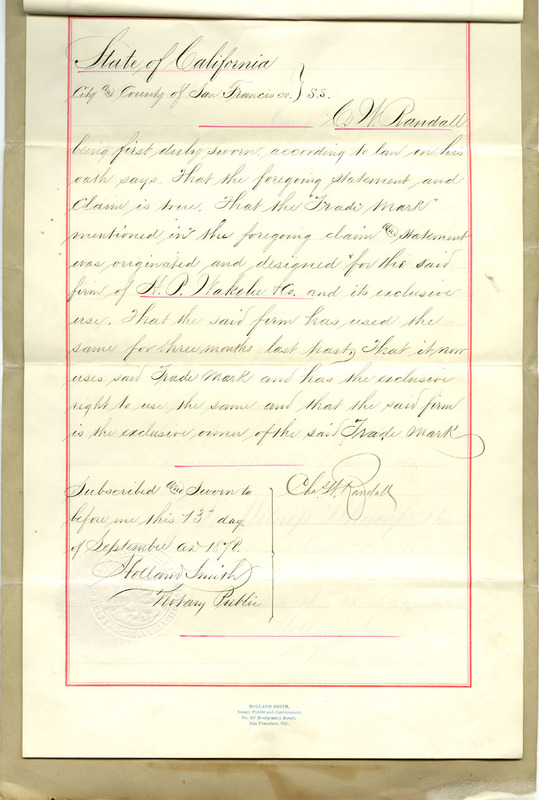 State of California
City and County of San Francisco } S.S.
C. W. Randall
being first duly sworn, according to law on his
oath says. That the foregoing statement and
Claim is true. That the "Trade Mark"
mentioned in the foregoing claim and statement
was originated and designed for the said
firm of H. P. Wakelee & Co. and its exclusive
use. That the said firm has used the
same for three months last past, That it now
uses said Trade Mark and has the exclusive
right to use the same and that the said firm
is the exclusive owner of the said Trade Mark
Subscribed and Sworn to
before me this 13" day
of September AD 1878.
Holland Smith
Notary Public
Chas. W. Randall
HOLLAND SMITH,
Notary Public and Conveyancer,
Montgomery Street,
San Francisco, Cal.